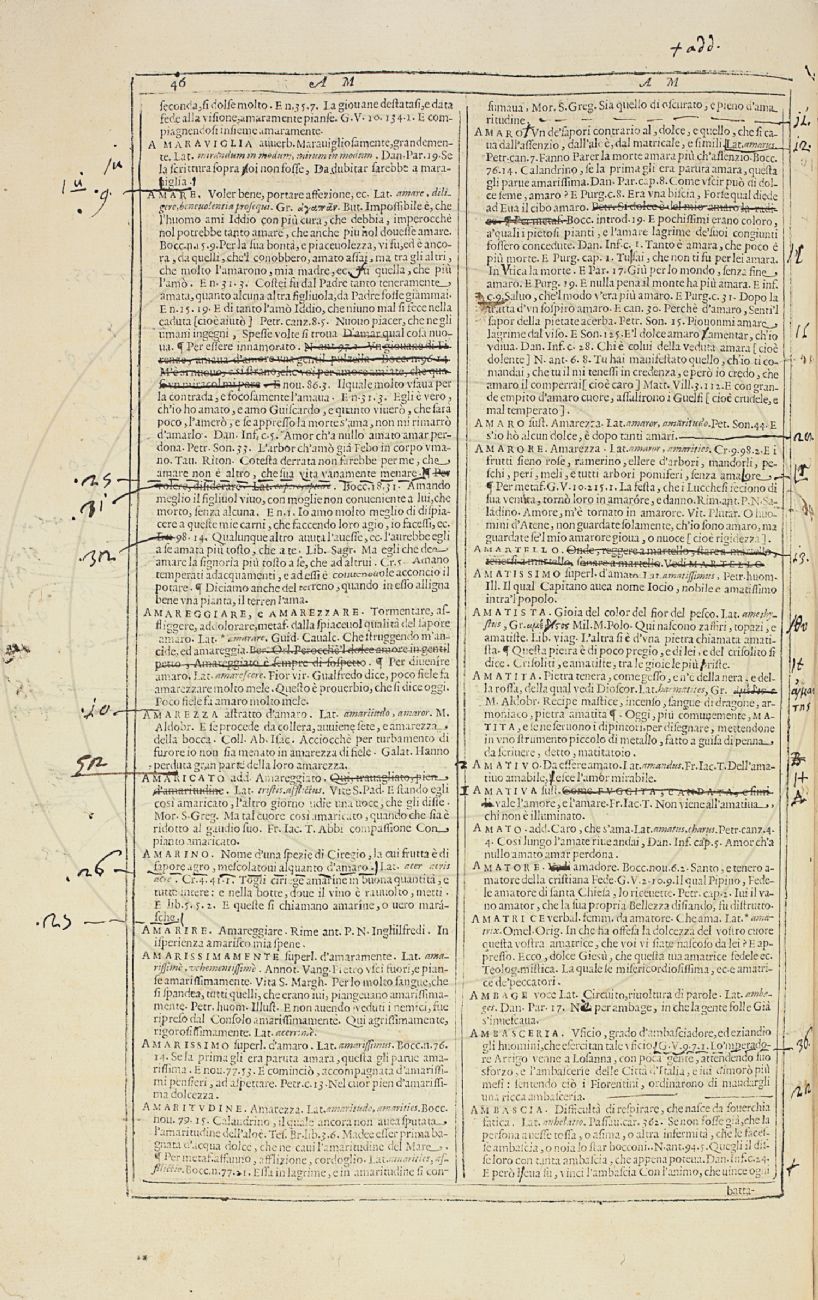 + add.
46 A M
A M
seconda, si dolse molto. E n.35.7. La giouane destatasi, e data
fede alla visione, amaramente pianse. G.V. 10. 134.1. E com-
piagnendosi insieme amaramente.
A MARAVIGLIA auuerb. Marauigliosamente, grandemen-
te. Lat. mirandum in modum, mirum in modum. Dan. Par. 19. Se
la scrittura sopra voi non fosse, Da dubitar sarebbe a mara-
uiglia.
AMARE. Voler bene, portare affezione, ec. Lat. amare, dili-
gere, beneuolentia prosequi. Gr. ἀγαπᾶν. But. Impossibile è, che
l'huomo ami Iddio con più cura, che debbia, imperocchè
nol potrebbe tanto amare, che anche più nol douesse amare.
Bocc. n. 5. 9. Per la sua bontà, e piaceuolezza, vi fu, ed è anco-
ra, da quelli, che'l conobbero, amato assai, ma tra gli altri,
che molto l'amarono, mia madre, ec. fu quella, che più
l'amò. E n. 31. 3. Costei fu dal Padre tanto teneramente
amata, quanto alcuna altra figliuola, da Padre fosse giammai.
E n. 15. 19. E di tanto l'amò Iddio, che niuno mal si fece nella
caduta [cioè aiutò] Petr. canz. 8.5. Nuouo piacer, che negli
umani ingegni, Spesse volte si troua D'amar qual cosa nuo-
ua. ¶ Per essere innamorato. N. ant. 97. 1. Vn giouane di Fi-
renze, amaua d'amore vna gentil pulzella. Bocc. n. 96. 14.
E nou. 86. 3. Il quale molto vsaua per
la contrada, e focosamente l'amaua. E n. 31. 3. Egli è vero,
ch'io ho amato, e amo Guiscardo, e quanto viuerò, che sarà
poco, l'amerò, e se appresso la morte s'ama, non mi rimarrò
d'amarlo. Dan. Inf. c. 5. Amor ch'a nullo amato amar per-
dona. Petr. Son. 33. L'arbor ch'amò già Febo in corpo vma-
no. Tau. Riton. Cotesta derrata non sarebbe per me, che
amare non è altro, che sua vita vanamente menare. ¶ Per
volere, disiderare. Bocc. 18. 31. Amando
meglio il figliuol viuo, con moglie non conueniente a lui, che
morto, senza alcuna. E n. 1. Io amo molto meglio di dispia-
cere a queste mie carni, che faccendo loro agio, io facessi, ec.
98. 14. Qualunque altro auuta l'auesse, ec. l'aurebbe egli
a se amata più tosto, che a te. Lib. Sagr. Ma egli che dee
amare la signoria più tosto a se, che ad altrui. Cr. 5. Amano
temperati adacquamenti, e ad essi è conueneuole acconcio il
potare. ¶ Diciamo anche del terreno, quando in esso alligna
bene vna pianta, il terren l'ama.
AMAREGGIARE, E AMAREZZARE. Tormentare, af-
fliggere, addolorare, metaf. dalla spiaceuol qualità del sapore
amaro. Lat. *amarare. Guid. Caualc. Che struggendo m'an-
cide, ed amareggia. Ber. Orl. Perocchè'l dolce amore in gentil
petto, Amareggiato è sempre di sospetto. ¶ Per diuenire
amaro. Lat. amarescere. Fior vir. Gualfredo dice, poco fiele fa
amarezzare molto mele. Questo è prouerbio, che si dice oggi.
Poco fiele fa amaro molto mele.
AMAREZZA astratto d'amaro. Lat. amaritudo, amaror. M.
Aldobr. E se procede da collera, auuiene sete, e amarezza
della bocca. Coll. Ab. Isac. Acciocchè per turbamento di
furore io non sia menato in amarezza di fiele. Galat. Hanno
perduta gran parte della loro amarezza.
AMARICATO add. Amareggiato. Qui, trauagliato, pien
d'amaritudine. Lat. tristis, afflictus. Vite S. Pad. E stando egli
così amaricato, l'altro giorno udie una uoce, che gli disse.
Mor. S. Greg. Ma tal cuore così amaricato, quando che sia è
ridotto al gaudio suo. Fr. Iac. T. Abbi compassione Con
pianto amaricato.
AMARINO. Nome d'una spezie di Ciregio, la cui frutta è di
sapore agro, mescolatoui alquanto d'amaro. Lat.
Cr. 4. 41. 1. Togli ciriege amarine in buona quantità, e
tutte intere: e nella botte, doue il vino è riuuolto, metti.
E lib. 5. 5. 2. E queste si chiamano amarine, o uero mara-
sche.
AMARIRE. Amareggiare. Rime ant. P. N. Inghilfredi. In
isperienza amarisco mia spene.
AMARISSIMAMENTE superl. d'amaramente. Lat. ama-
rissimè, vehementissimè. Annot. Vang. Pietro vscì fuori, e pian-
se amarissimamente. Vita S. Margh. Per lo molto sangue, che
si spandea, tutti quelli, che erano iui, piangeuano amarissima-
mente. Petr. huom. Illust. E non auendo veduti i nemici, fue
ripreso dal Consolo amarissimamente. Qui agrissimamente,
rigorosissimamente. Lat. acerrimè.
AMARISSIMO superl. d'amaro. Lat. amarissimus. Bocc. n. 76.
14. Se la prima gli era paruta amara, questa gli parue ama-
rissima. E nou. 77. 53. E cominciò, accompagnata d'amarissi-
mi pensieri, ad aspettare. Petr. c. 13. Nel cuor pien d'amarissi-
ma dolcezza.
AMARITVDINE. Amarezza. Lat. amaritudo, amarities. Bocc.
nou. 79. 15. Calandrino, il quale ancora non auea sputata
l'amaritudine dell'aloè. Tes. Br. lib. 3. 6. Madee esser prima ba-
gnata d'acqua dolce, che ne caui l'amaritudine del Mare.
¶ Per metaf. affanno, afflizione, cordoglio. Lat. amarities, af-
flictio. Bocc. n. 77. 21. Essa in lagrime, e in amaritudine si con-
sumaua. Mor. S. Greg. Sia quello dì oscurato, e pieno d'ama-
ritudine.
AMARO. Vn de' sapori contrario al dolce, e quello, che si ca-
ua dall'assenzio, dall'aloè, dal matricale, e simili. Lat. amarus.
Petr. can. 7. Fanno Parer la morte amara più ch'assenzio. Bocc.
76. 14. Calandrino, se la prima gli era partita amara, questa
gli parue amarissima. Dan. Par. cap. 8. Come vscir può di dol-
ce seme, amaro? E Purg. c. 8. Era vna biscia, Forse qual diede
ad Eua il cibo amaro. Petr. Si dolce è del mio amaro la radi-
ce. ¶ Per metaf. Bocc. introd. 19. E pochissimi erano coloro,
a'quali i pietosi pianti, e l'amare lagrime de'suoi congiunti
fossero concedute. Dan. Inf. c. 1. Tanto è amara, che poco è
più morte. E Purg. cap. 1. Tu'l sai, che non ti fu per lei amara.
In Vtica la morte. E Par. 17. Giù per lo mondo, senza fine
amaro. E Purg. 19. E nulla pena al monte ha più amara. E inf.
c. 9. Saluo, che'l modo v'era più amaro. E Purg. c. 31. Dopo la
tratta d'vn sospiro amaro. E can. 30. Perchè d'amaro, Senti'l
sapor della pietate acerba. Petr. Son. 15. Piouonmi amare
lagrime dal viso. E Son. 125. E'l dolce amaro lamentar, ch'io
vdiua. Dan. Inf. c. 28. Chi è colui della veduta amara [cioè
dolente] N. ant. 6. 8. Tu hai manifestato quello, ch'io ti co-
mandai, che tu il mi tenessi in credenza, e però io credo, che
amaro il comperrai [cioè caro] Matt. Vill. 3. 112. E con gran-
de empito d'amaro cuore, assalirono i Guelfi [cioè crudele, e
mal temperato].
AMARO sust. Amarezza. Lat. amaror, amaritudo. Pet. Son. 44. E
s'io ho alcun dolce, è dopo tanti amari.
AMARORE. Amarezza. Lat. amaror, amarities. Cr. 9. 98. 2. E i
frutti sieno rose, ramerino, ellere d'arbori, mandorli, pe-
schi, peri, meli, e tutti arbori pomiferi, senza amarore.
¶ Per metaf. G. V. 10. 215. 1. La festa, che i Lucchesi feciono di
sua venuta, tornò loro in amarore, e danno. Rim. ant. P. N. Sa-
ladino. Amore, m'è tornato in amarore. Vit. Plutar. O huo-
mini d'Atene, non guardate solamente, ch'io sono amaro, ma
guardate se'l mio amarore gioua, o nuoce [cioè rigidezza].
AMARTELLO. Onde, reggere a martello, stare a martello,
tenersi a martello, sonare a martello. Vedi MARTELLO.
AMATISSIMO superl. d'amato. Lat. amatissimus. Petr. huom.
Ill. Il qual Capitano auea nome Iocio, nobile e amatissimo
intra'l popolo.
AMATISTA. Gioia del color del fior del pesco. Lat. amethy-
stus, Gr. Mil. M. Polo. Qui nascono zaffiri, topazi, e
amatiste. Lib. viag. L'altra si è d'vna pietra chiamata amati-
sta. ¶ Questa pietra è di poco pregio, e di lei, e del crisolito si
dice. Crisoliti, e amatiste, tra le gioie le più triste.
AMATITA. Pietra tenera, come gesso, e n'c'è della nera, e del-
la rossa, della qual vedi Dioscor. Lat. haematites, Gr.
M. Aldobr. Recipe mastice, incenso, sangue di dragone, ar-
moniaco, pietra amatita ¶. Oggi, più comunemente, MA-
TITA, e se ne seruono i dipintori, per disegnare, mettendone
in vno strumento piccolo di metallo, fatto a guisa di penna
da scriuere, detto, matitatoio.
AMATIVO. Da essere amato. Lat. amandus. Fr. Iac. T. Dell'ama-
tiuo amabile, Esce l'amor mirabile.
AMATIVA sust. Come FVGGITA, E ANDATA, e simi-
li vale l'amore, e l'amare. Fr. Iac. T. Non viene all'amatiua,
chi non è illuminato.
AMATO. add. Caro, che s'ama. Lat. amatus, charus. Petr. canz. 4.
4. Così lungo l'amate riue andai, Dan. Inf. cap. 5. Amor ch'a
nullo amato amar perdona.
AMATORE. amadore. Bocc. nou. 6. 2. Santo, e tenero a-
matore della cristiana Fede. G. V. 2. 10. 9. Il qual Pipino, Fede-
le amatore di santa Chiesa, lo riceuette. Petr. cap. 5. Iui il va-
no amator, che la sua propria Bellezza disiando, fu distrutto.
AMATRICE verbal. femm. da amatore. Che ama. Lat. *ama-
trix. Omel. Orig. In che ha offesa la dolcezza del vostro cuore
questa vostra amatrice, che voi vi siate nascoso da lei? E ap-
presso. Ecco, dolce Giesù, che questa tua amatrice fedele ec.
Teolog. mistica. La quale se misericordiosissima, ec. e amatri-
ce de'peccatori.
AMBAGE voce Lat. Circuito, riuoltura di parole. Lat. amba-
ges. Dan. Par. 17. Nè per ambage, in che la gente folle Già
s'inuescaua.
AMBASCERIA. Vficio, grado d'ambasciadore, ed eziandio
gli huomini, che esercitan tale vficio. G. V. 9. 7. 1. Lo'mperado-
re Arrigo venne a Losanna, con poca gente, attendendo suo
sforzo, e l'ambascerie delle Città d'Italia, e iui dimorò più
mesi: sentendo ciò i Fiorentini, ordinarono di mandargli
una ricca ambasceria.
AMBASCIA. Difficultà di respirare, che nasce da souerchia
fatica. Lat. anhelatio. Passau. car. 362. Se non fosse già, che la
persona auesse tossa, o asima, o altra infermità, che le faces-
se ambascia, o noia lo star bocconi. N. ant. 94. 5. Quegli il dis-
se loro con tanta ambascia, che appena poteua. Dan. Inf. c. 24.
E però leua su, vinci l'ambascia Con l'animo, che uince ogni
batta-